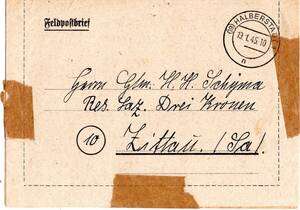 Feldpostbrief
(19) HALBERSTA
13.1.45.10
n
Herrn Gfm. H. H. Schÿma
Res. Laz. Drei Kronen
(10) Zittau. /Sa/.